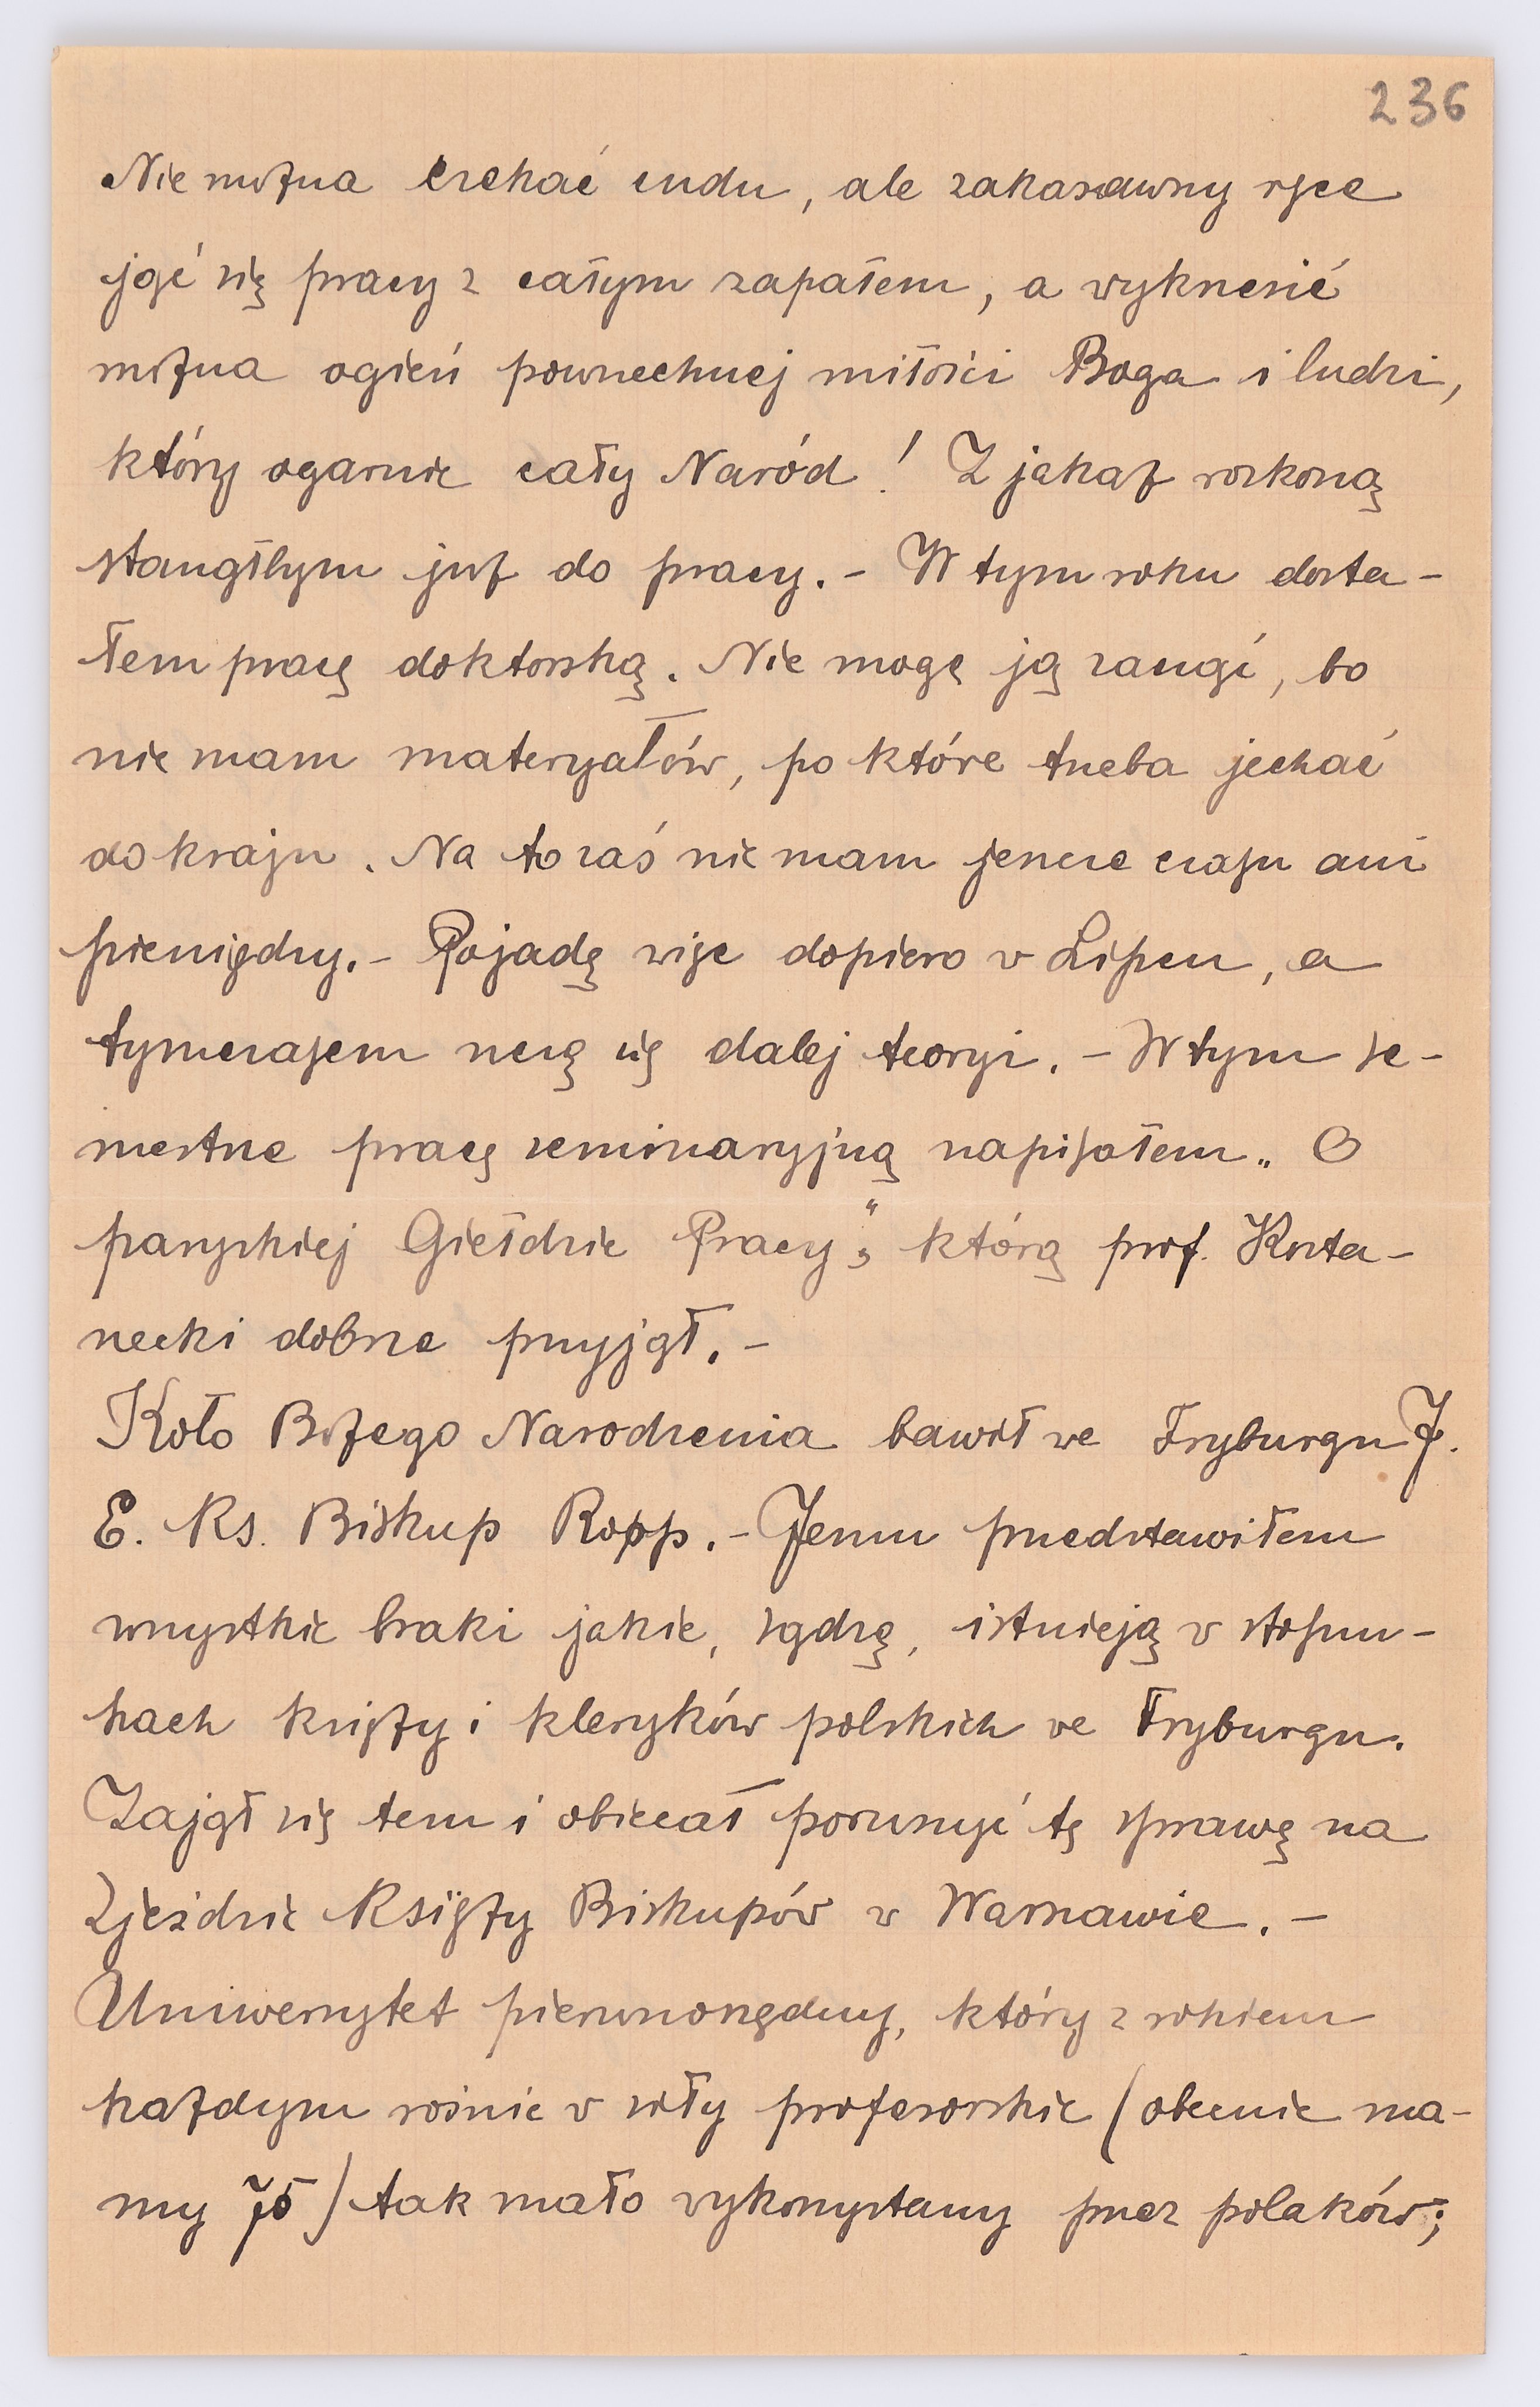 236
Nie można czekać cudu, ale zakasawszy ręce
jąć się pracy z całym zapałem, a wykrzesić
można ogień powszechnej miłości Boga i ludzi,
który ogarnie cały Naród! Z jakaż rozkoszą
stanąłbym już do pracy. - W tym roku dosta-
łem pracę doktorską. Nie mogę ją zacząć, bo
nie mam materyałów, po które trzeba jechać
do kraju. Na to zaś nie mam jeszcze czasu ani
pieniędzy. - Pojadę więc dopiero w Lipcu, a
tymczasem uczę się dalej teoryi. - W tym se-
mestrze pracę seminaryjną napisałem „O
paryskiej Giełdzie Pracy“, którą prof. Kosta-
necki dobrze przyjął. -
Koło Bożego Narodzenia bawił we Fryburgu J.
E. Ks. Biskup Ropp. - Jemu przedstawiłem
wszystkie braki jakie, sądzę, istnieją w stosun-
kach księży i kleryków polskich we Fryburgu.
Zajął się tem i obiecał poruszyć tę sprawę na
Zjeździe Księży Biskupów w Warszawie. -
Uniwersytet pierwszorzędny, który z rokiem
każdym rośnie w siły profesorskie (obecnie ma-
my 76) tak mało wykorzystany przez polaków;